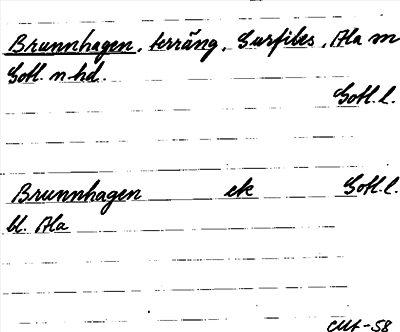 Brunnhagen, terräng, Surfites, Ala sn
Gotl. n. hd.
Gotl. l.
Brunnhagen ek Gotl. l.
bl. Ala
CMH-58